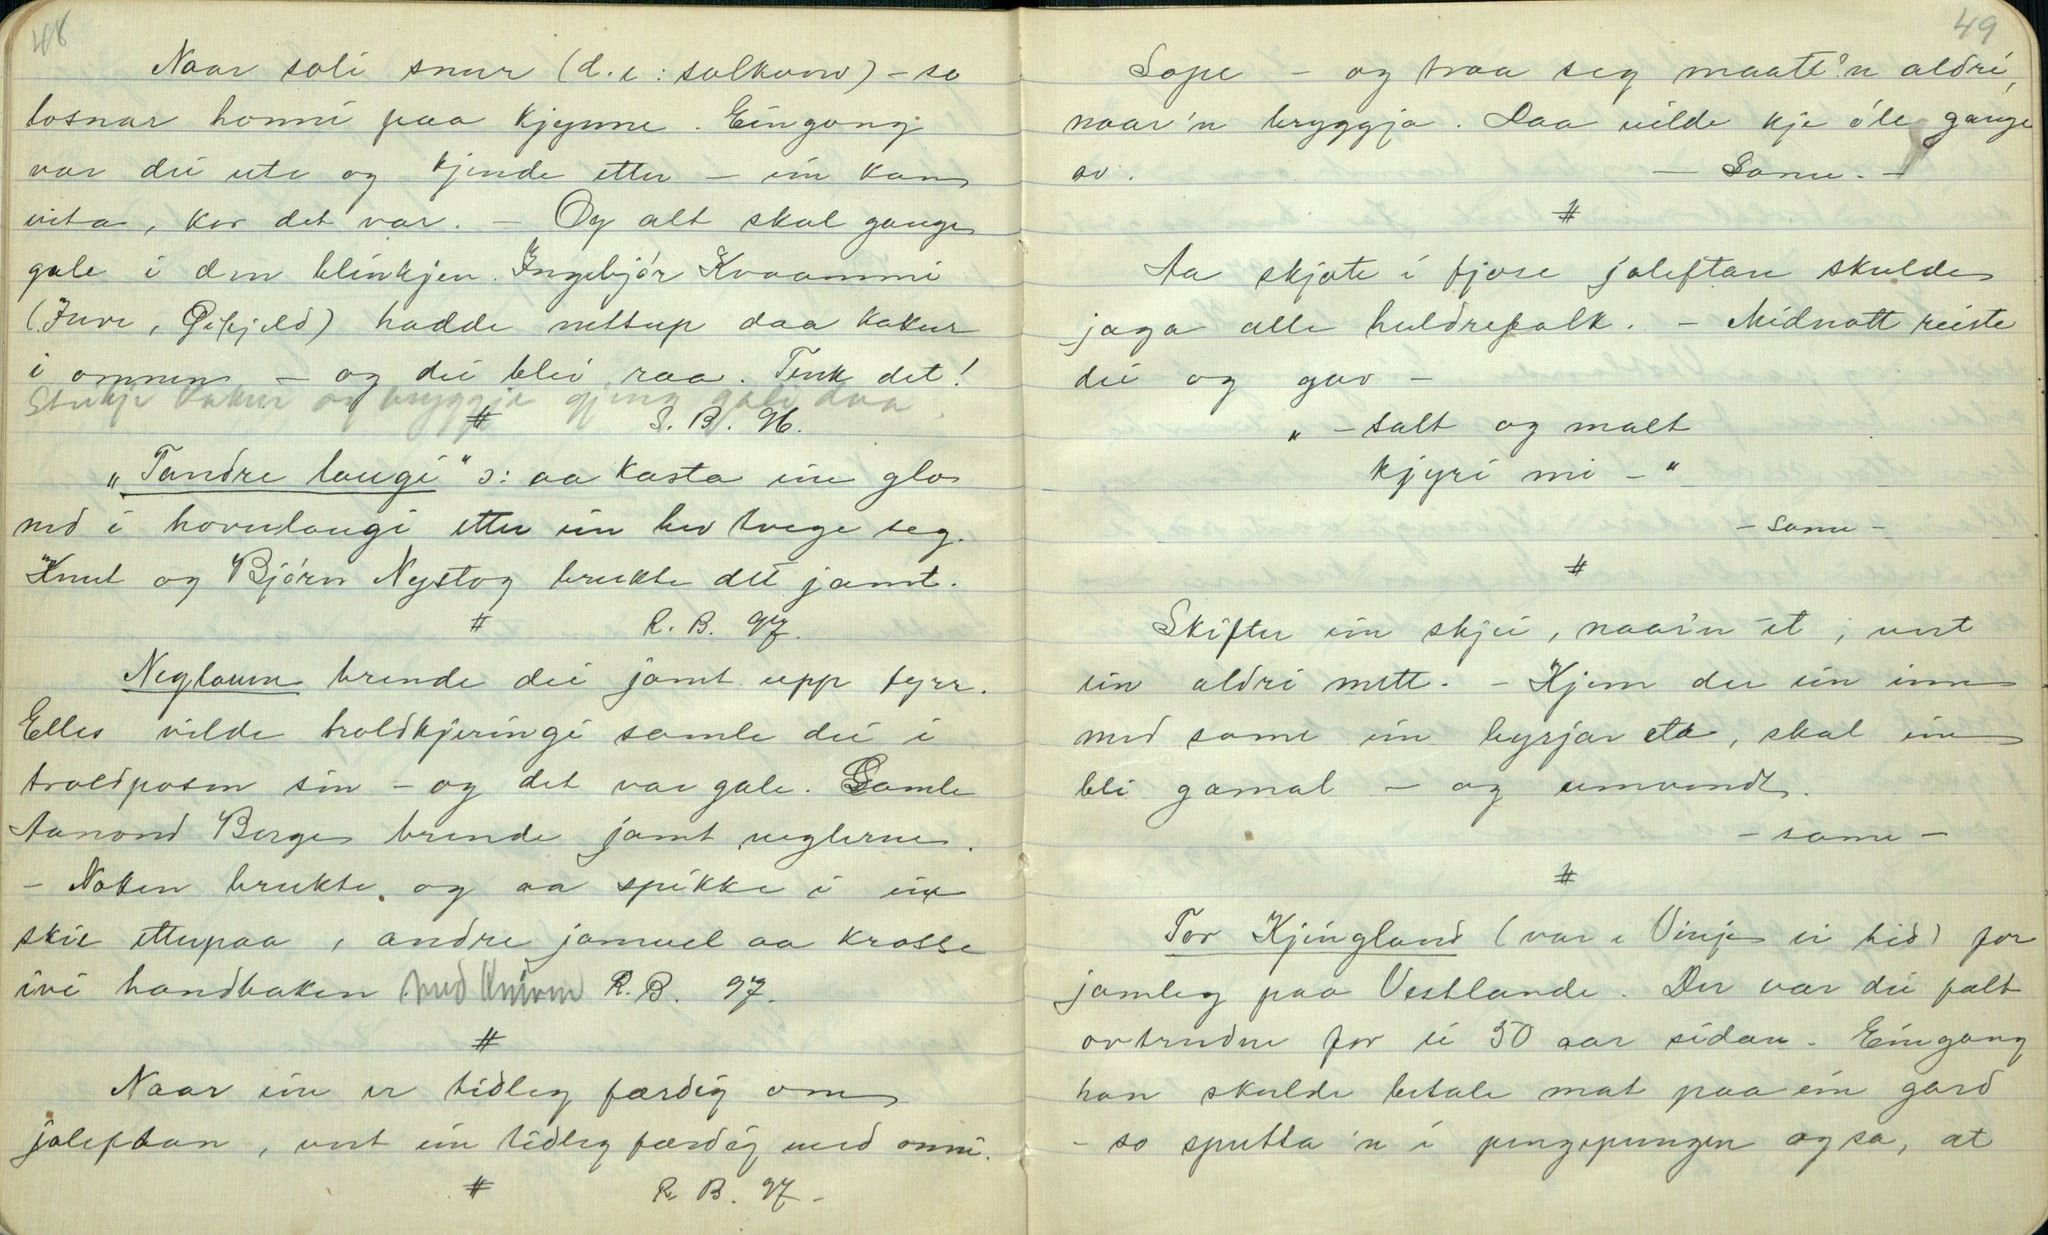 48
Naar soli snur (d. e: solkverv) – so
losnar honni paa kjynne. Eingong
var dei ute og kjende etter – ein kan
vita, kor det var. – Og alt skal gange
gale i den blinkjen. Ingebjór Kvaammi
(Juve, Øifjeld) hadde nettup daa kakur
i omnen – og dei blei raa. Tenk det!
Steikje kakur og bryggje gjeng gale daa.
# S. B. 96.
„Tendre laugi" ɔ: aa kasta ein glo
ned i hovulaugi etter ein hev tvege seg.
Knut og Bjórn Nystog brukte det jamt.
# R. B. 97.
Neglann brende dei jamt upp fyrr.
Elles vilde troldkjeringi samle dei i
troldposen sin – og det var gale. Gamle
Aanond Berge brende jamt neglerne.
– Noken brukte og aa spikke i ein
skie etterpaa, andre jamvel aa krosse
ivi handbaken med kniven R. B. 97.
#
Naar ein er tidleg færdig om
joleftan, vert ein tidleg færdig med onni.
# R. B. 97. –
49
Sope – og tvaa seg maatte'n aldri,
naar'n bryggja. Daa vilde kje óle gange
av. – Same. –
#
Aa skjote i fjose joleftan skulde
jaga alle huldrefolk. – Midnatt reiste
dei og gav –
„ – salt og malt
kjyri mi – "
– same –
#
Skifter ein skjei, naar'n et, vert
ein aldri mett. – Kjem der ein inn
med same ein byrjar eta, skal ein
bli gamal – og umvendt.
– same –
#
Tor Kjingland (var i Vinje ei tid) for
jamleg paa Vestlande. Der var dei fælt
ovtrudne for ei 50 aar sidan. Eingong
han skulde betale mat paa ein gard
– so sputta 'n i pengepungen og sa, at